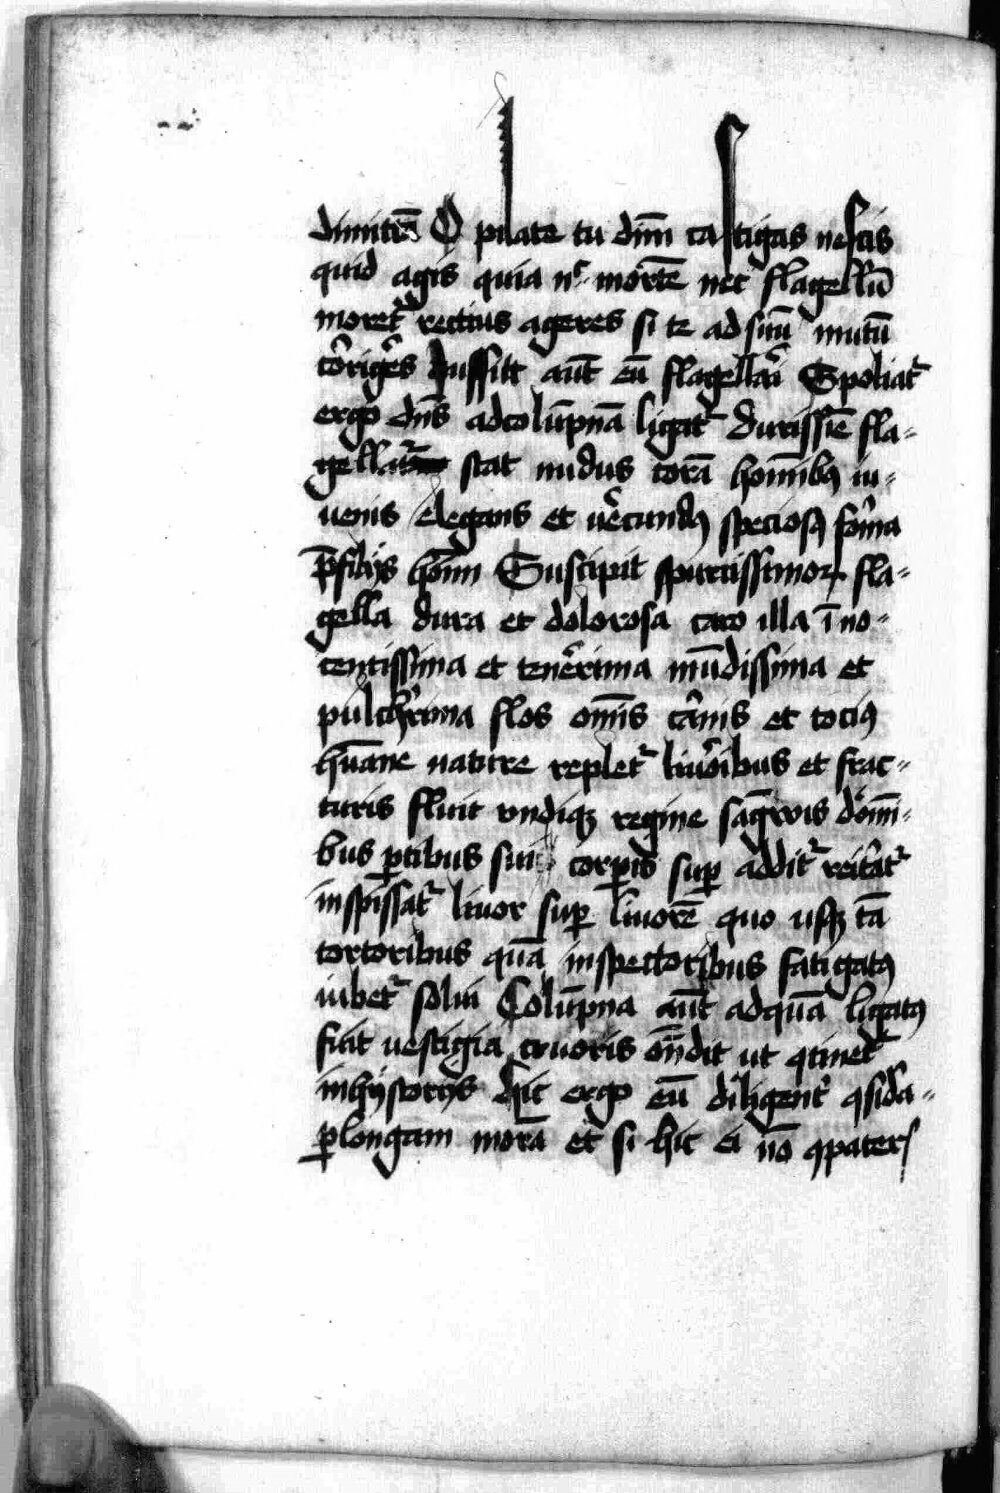 dimittā O pilate tu dn̄m castigas nescis
quid agis quia nͨ mortē nec flagellū
moret᷑ rectius ageres si te ad sitū mutū
co᷑rig᷑es Jussitt aut̄ eū flagella᷑i Spoliat᷑
ergo dn̄s ad colūpnā ligat᷑ durissīe fla-
gellat᷑ stat nudus corā hominibꝫ iu-
uenis elegans et ue᷑cundꝰ speciosꝰ fo᷑ma
p̄ filijs ho᷑m Suscipit spurcissimoꝝ fla-
gella dura et dolorosa caro illa īno-
centissima et tene᷑rima mūdissima et
pulch᷑rima flos om̄is ca᷑nis et tociꝰ
hūane nature replet᷑ liuo᷑ibus et frac-
turis fluit vndiqꝫ regine sāgwis do᷑m̄i-
bus ꝑtibus sui corꝑis suꝑ addit᷑ reit᷑at᷑
inspissat᷑ liuor suꝑ liuorē quo usqꝫ tā
tortoribus quā inspectoribus fatigatꝰ
iubet᷑ solui Colūpna aut̄ ad quā ligatꝰ
fuit uestigia cruoris on̄dit ut ꝯtinet᷑
in hystorijs hic ergo eū diligent᷑ ꝯsid᷑a-
ꝑ longam morā et si hic ei nō ꝯpateris